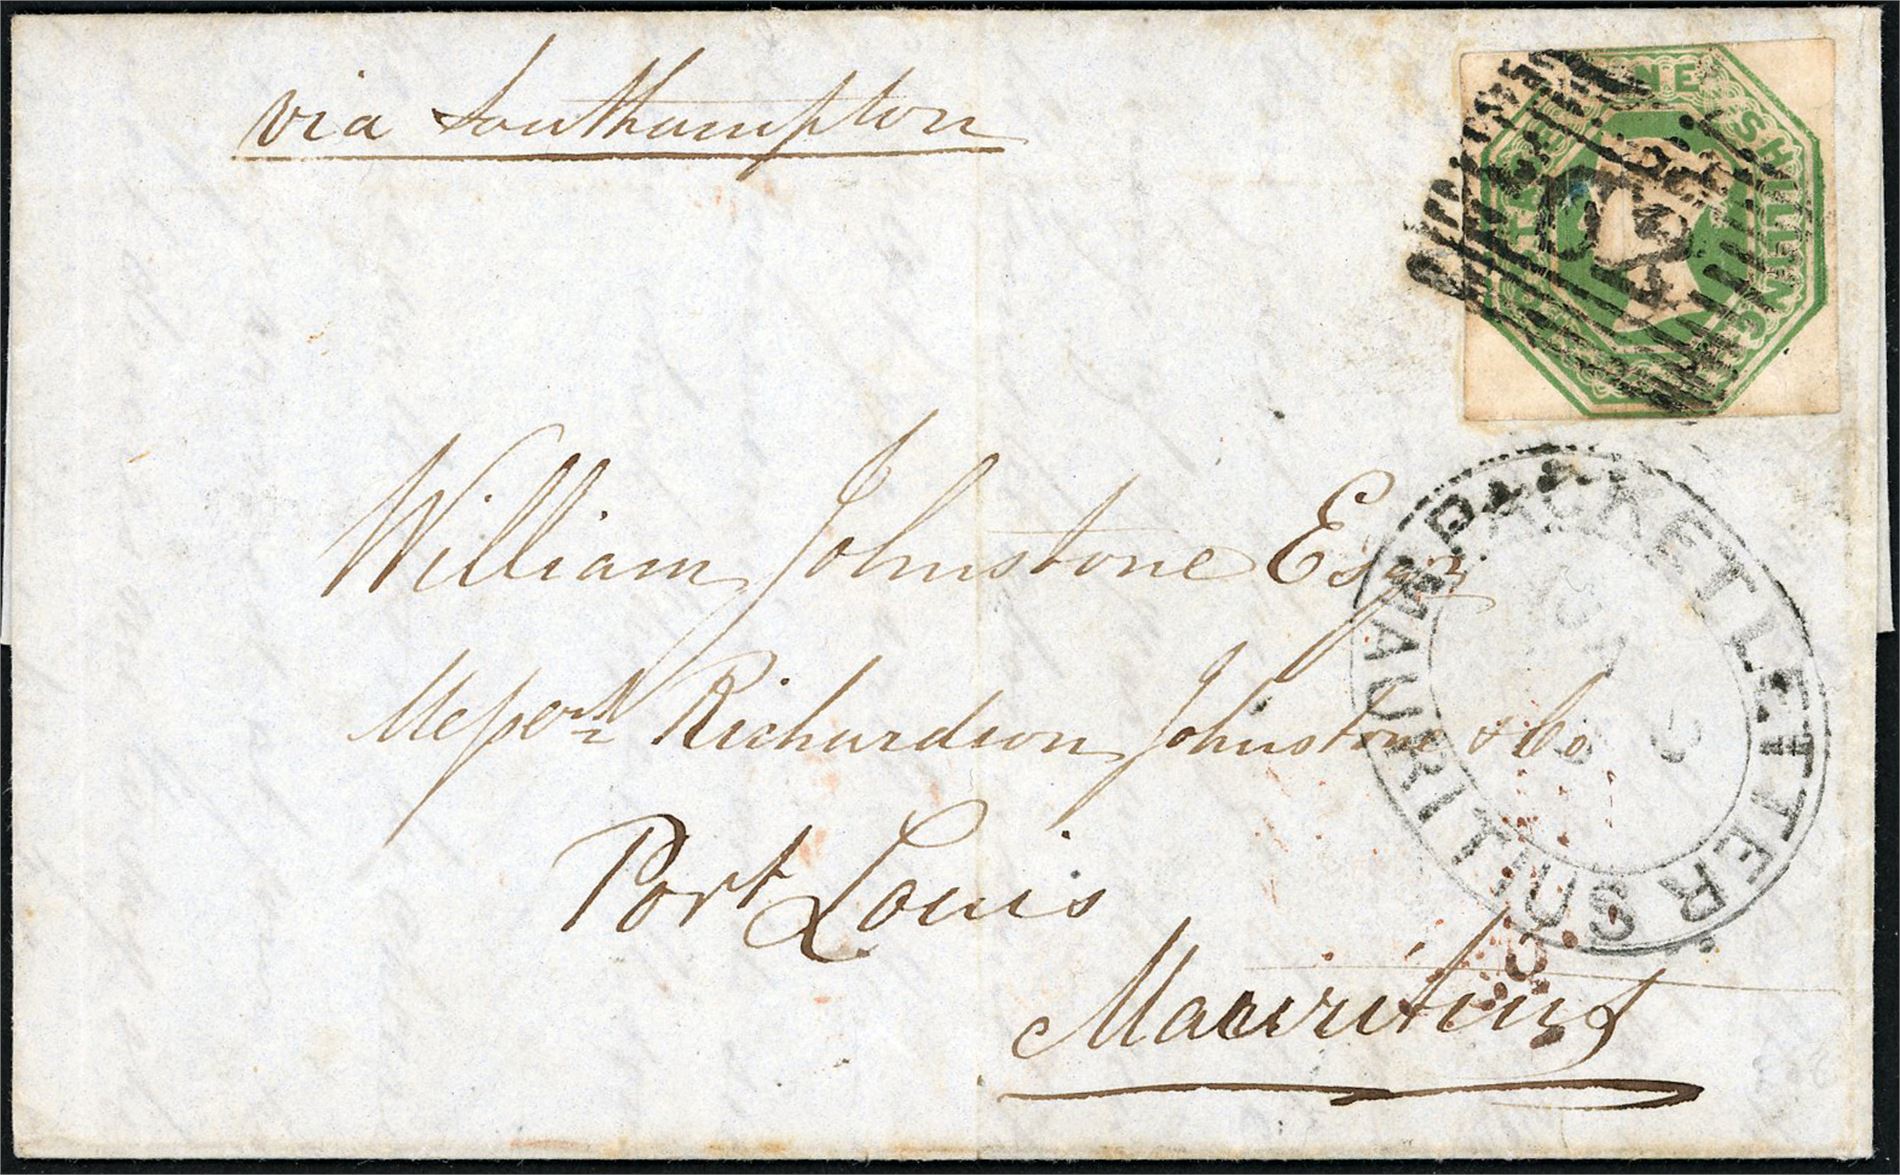 via Southampton
POSTAGE ONE SHILLING
William Johnstone Esqr
PACKET LETTER
MAURITIUS
Messrs Richardson Johnstone & Co.
Port Louis
Mauritius